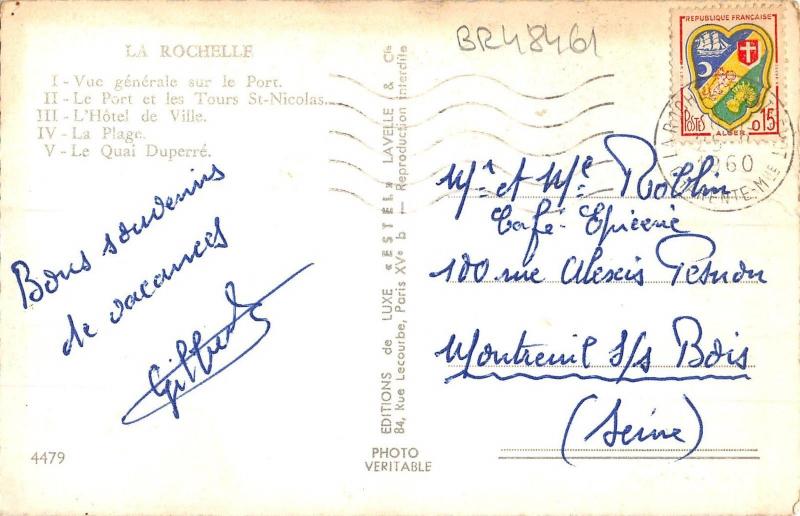 LA ROCHELLE
I - Vue générale sur le Port.
II - Le Port et les Tours St-Nicolas.
III - L'Hôtel de Ville.
IV - La Plage.
V - Le Quai Duperré.
Bons souvenirs
de vacances
4479
EDITIONS de LUXE «ESTEL» LAVELLE & Cie
84, Rue Lecourbe, Paris XVe b — Reproduction interdite
PHOTO
VERITABLE
BR48461
REPUBLIQUE FRANÇAISE
POSTES ALGER 0,15
1960
Mr et Me Roblin
Café-Epicerie
100 rue Alexis Pesnon
Montreuil s/s Bois
(Seine)